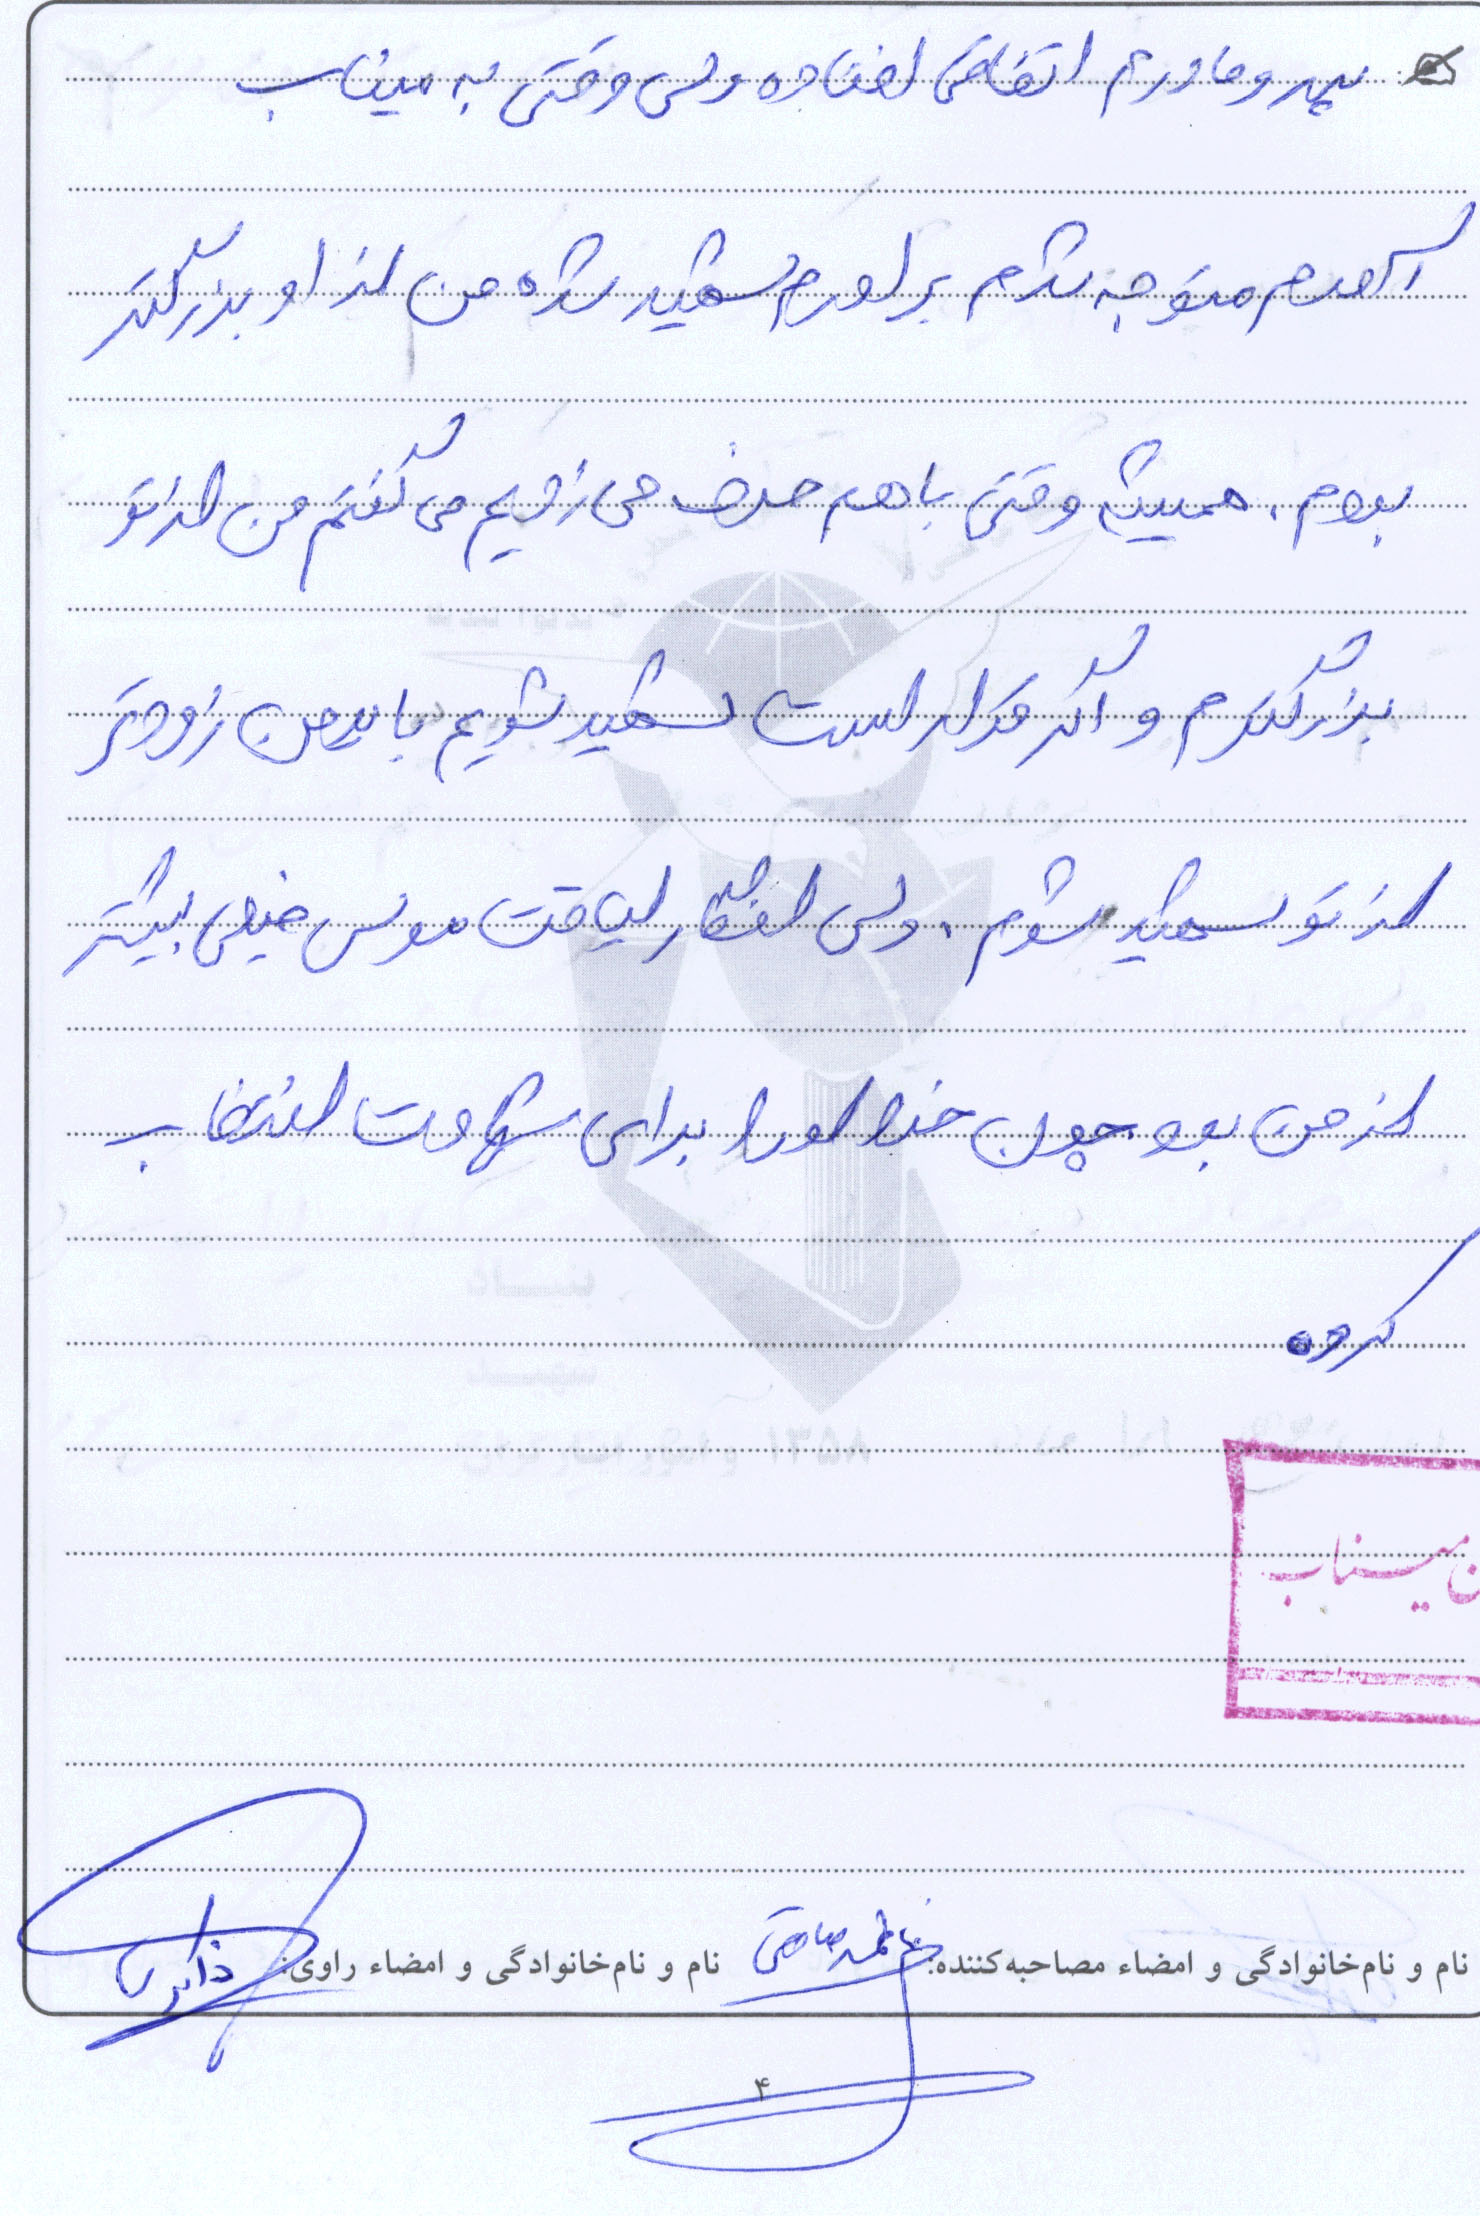 پدر و مادرم اتفاقی افتاده ولی وقتی به میناب
آمدم متوجه شدم برادرم شهید شده من از او بزرگتر
بودم. همیشه وقتی با هم حرف می زدیم می گفتم من از تو
بزرگترم و اگر قرار است شهید شویم باید من زودتر
از تو شهید شوم. ولی افتخار لیاقت مونس خیلی بیشتر
از من بود چون خدا او را برای شهادت انتخاب
کرده
بنیاد
شهید
۱۳۵۸ و امور ایثارگران
ن میناب
نام و نام‌خانوادگی و امضاء مصاحبه‌کننده: فاطمه صادقی نام و نام‌خانوادگی و امضاء راوی:
۴